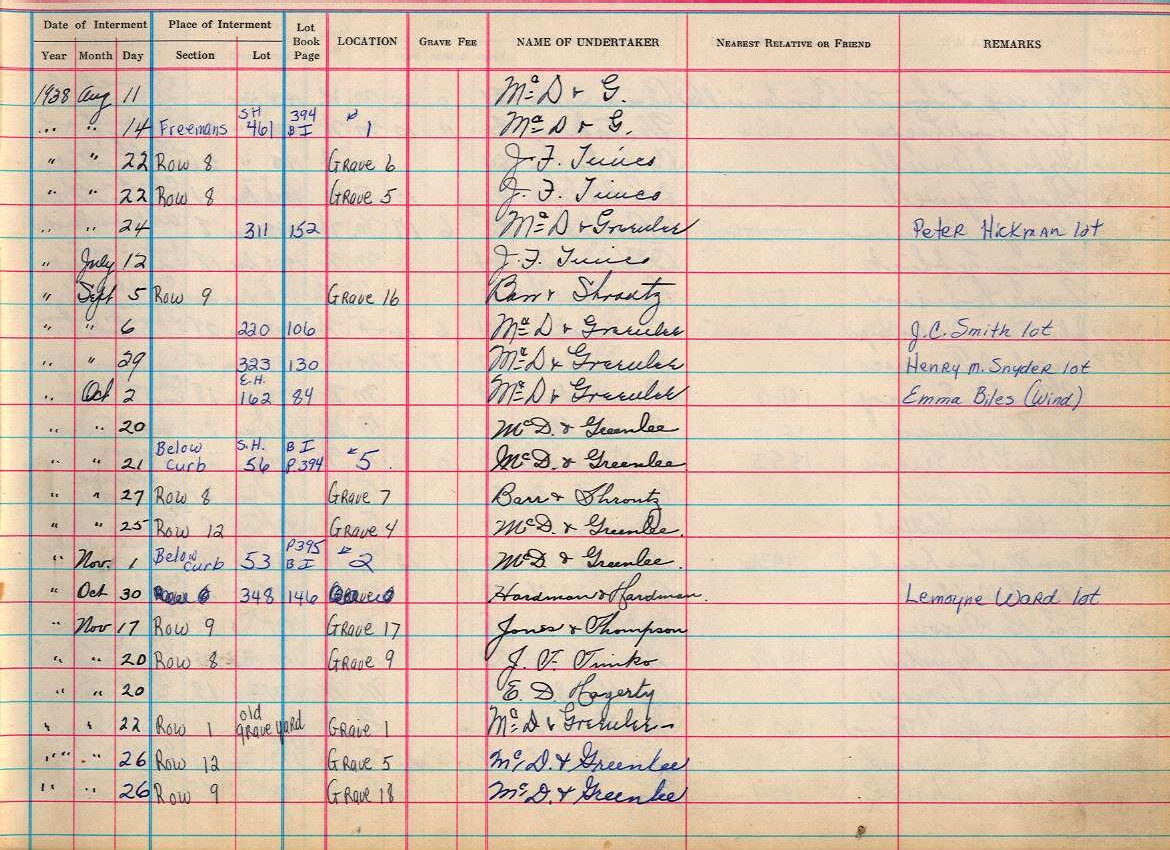 Date of Interment Place of Interment Lot Book Page LOCATION GRAVE FEE NAME OF UNDERTAKER NEAREST RELATIVE OR FRIEND REMARKS
Year Month Day Section Lot
1938 Aug 11 McD & G.
" " 14 Freemans SH 461 394 B I # 1 McD & G.
" " 22 Row 8 Grave 6 J. F.
" " 22 Row 8 Grave 5 J. F.
" " 24 311 152 McD & Greenlee Peter Hickman lot
" July 12 J. F.
" Sept 5 Row 9 Grave 16 Barr & Shrontz
" " 6 220 106 McD & Greenlee J.C. Smith lot
" " 29 323 130 McD & Greenlee Henry M. Snyder lot
" Oct 2 E.H. 162 84 McD & Greenlee Emma Biles (Wind)
" " 20 McD. & Greenlee
" " 21 Below Curb S.H. 56 B I P.394 # 5. McD. & Greenlee
" " 27 Row 8 Grave 7 Barr & Shrontz
" " 25 Row 12 Grave 4 McD. & Greenlee.
" Nov. 1 Below Curb 53 P395 B I # 2 McD. & Greenlee.
" Oct 30 348 146 Hardman & Hardman. Lemoyne Ward lot
" Nov 17 Row 9 Grave 17 Jones & Thompson
" " 20 Row 8 Grave 9 J. F. Timko
" " 20 E. D. Hagerty
" " 22 Row 1 old grave yard Grave 1 McD & Greenlee
" " 26 Row 12 Grave 5 McD. & Greenlee
" " 26 Row 9 Grave 18 McD. & Greenlee